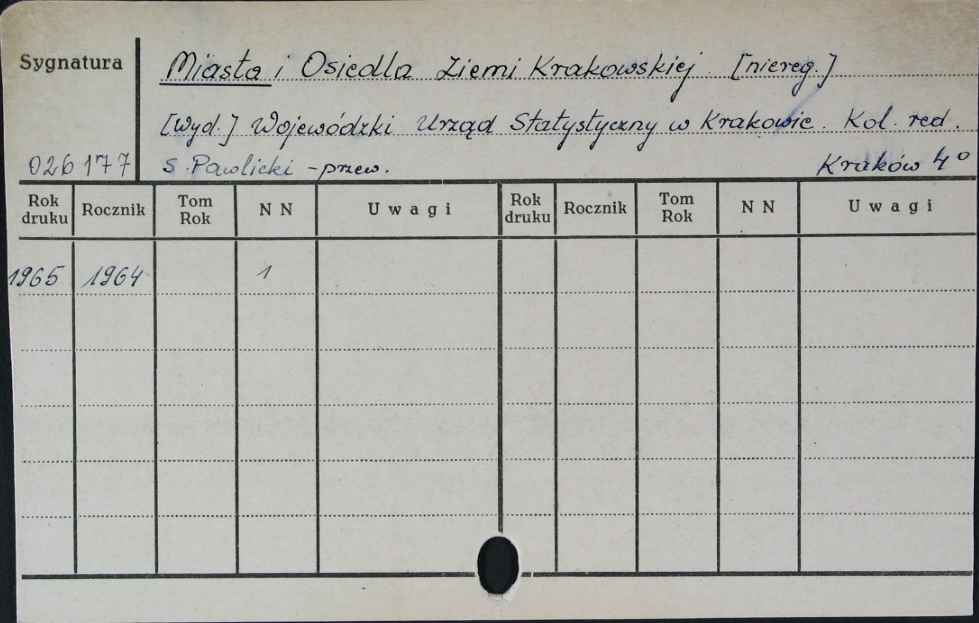 Sygnatura
Miasta i Osiedla Ziemi Krakowskiej [niereg.]
[Wyd.] Wojewódzki Urząd Statystyczny w Krakowie. Kol. red.
026177 S. Pawlicki - przew. Kraków 4°
Rok druku Rocznik Tom Rok N N Uwagi Rok druku Rocznik Tom Rok N N Uwagi
1965 1964 1